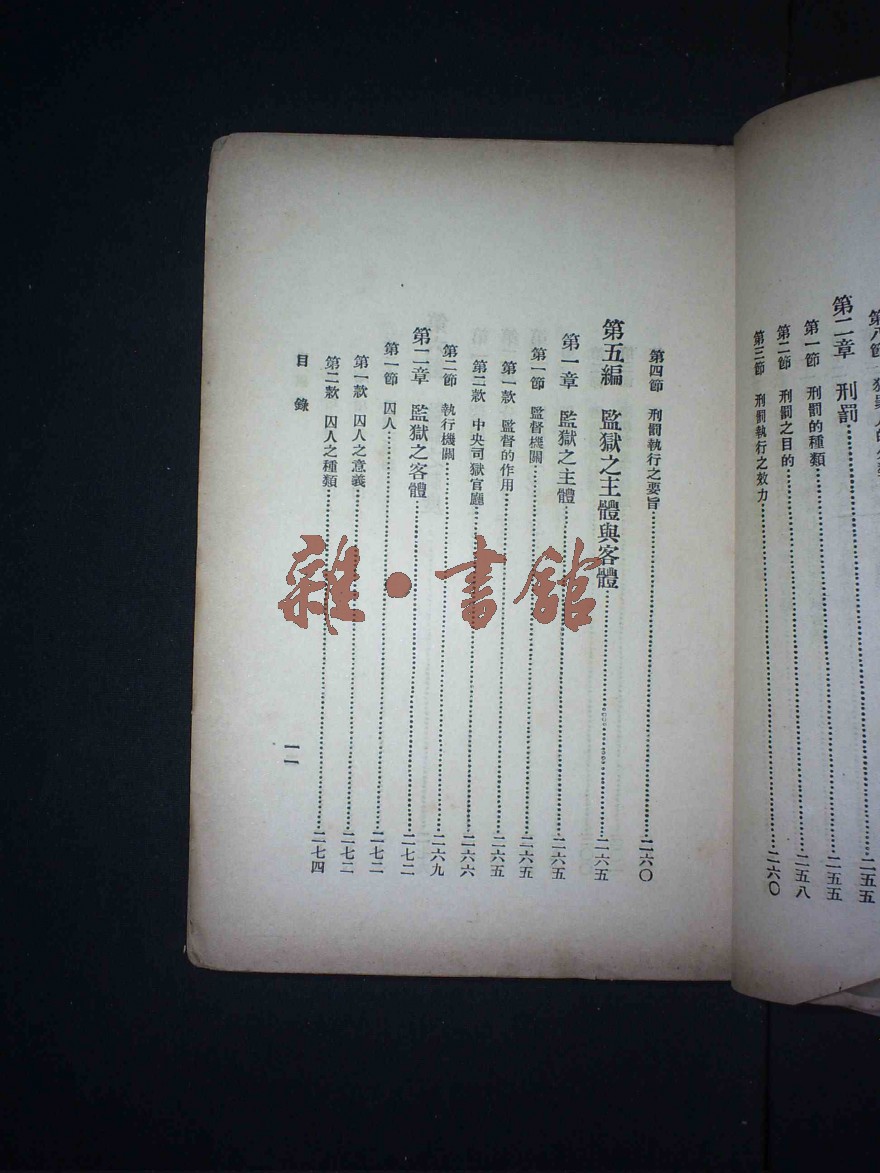 第二章 刑罰……二五五
第一節 刑罰的種類……二五五
第二節 刑罰之目的……二五八
第三節 刑罰執行之效力……二六〇
第四節 刑罰執行之要旨……二六〇
第五編 監獄之主體與客體……二六五
第一章 監獄之主體……二六五
第一節 監督機關……二六五
第一款 監督的作用……二六五
第二款 中央司獄官廳……二六六
第二節 執行機關……二六九
第二章 監獄之客體……二七二
第一節 囚人……二七二
第一款 囚人之意義……二七二
第二款 囚人之種類……二七四
目錄
一一
雜·書館